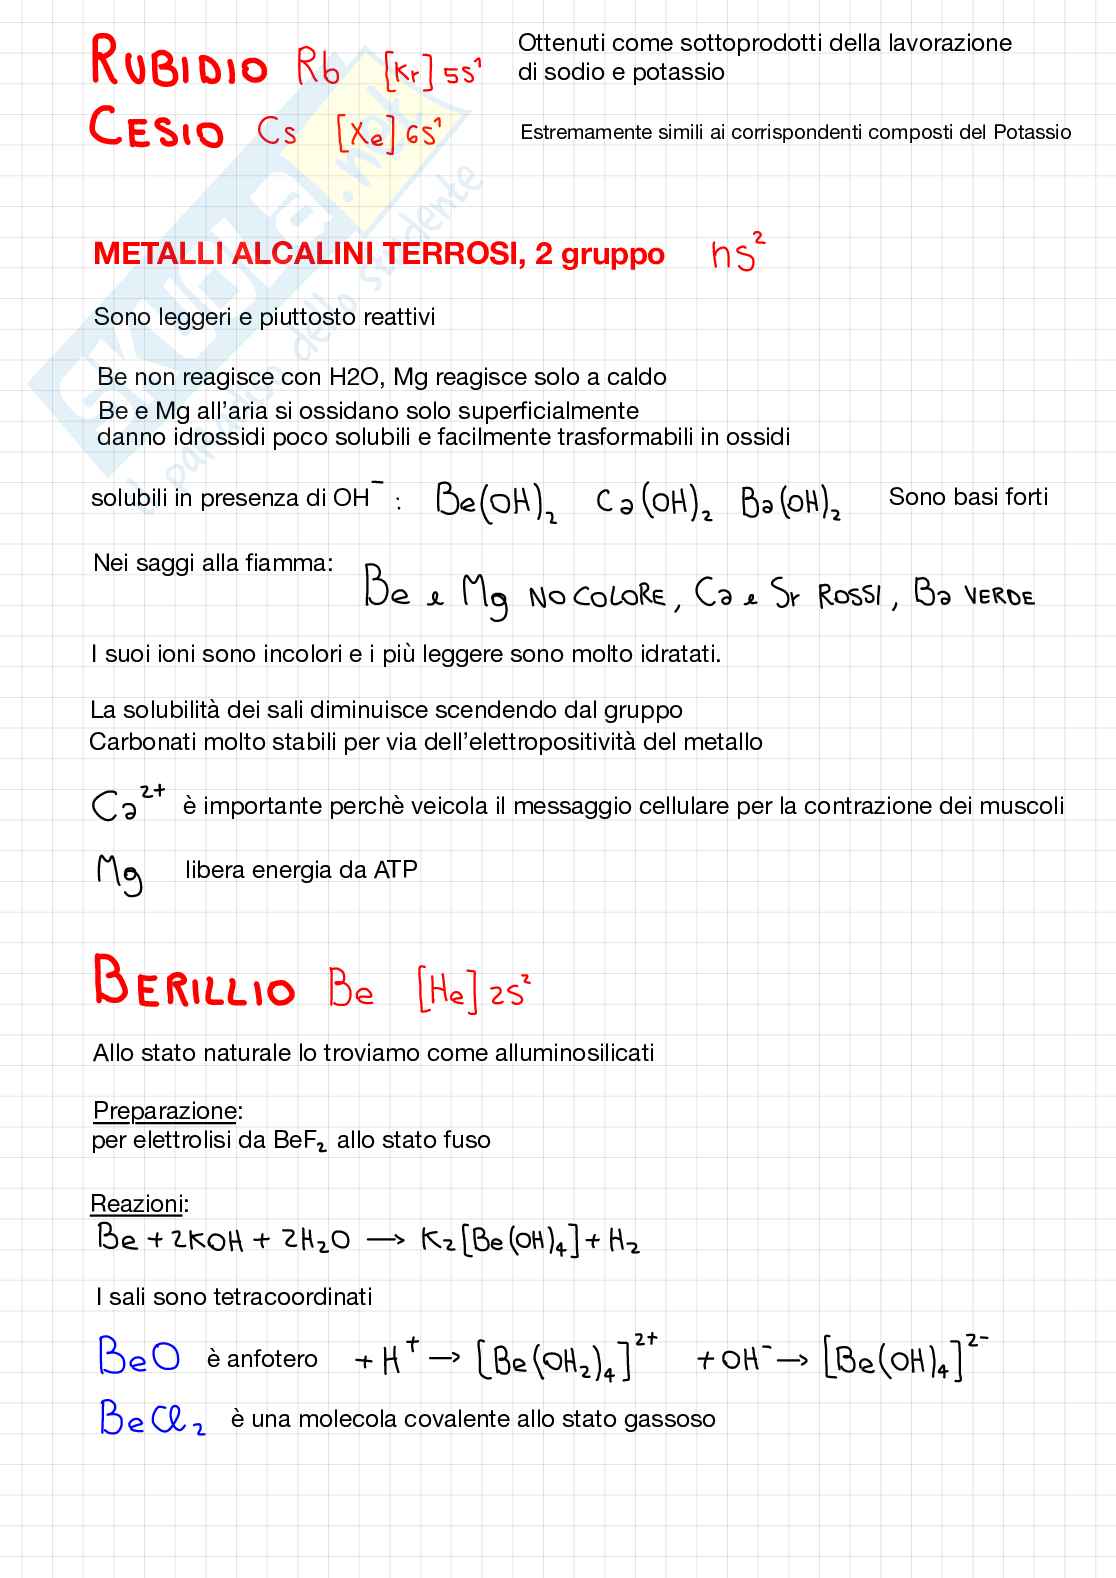 RUBIDIO Rb [Kr] 5s¹ Ottenuti come sottoprodotti della lavorazione
di sodio e potassio
CESIO Cs [Xe] 6s¹ Estremamente simili ai corrispondenti composti del Potassio
METALLI ALCALINI TERROSI, 2 gruppo ns²
Sono leggeri e piuttosto reattivi
Be non reagisce con H2O, Mg reagisce solo a caldo
Be e Mg all'aria si ossidano solo superficialmente
danno idrossidi poco solubili e facilmente trasformabili in ossidi
solubili in presenza di OH⁻ : Be(OH)₂ Ca(OH)₂ Ba(OH)₂ Sono basi forti
Nei saggi alla fiamma: Be e Mg NO COLORE, Ca e Sr ROSSI, Ba VERDE
I suoi ioni sono incolori e i più leggere sono molto idratati.
La solubilità dei sali diminuisce scendendo dal gruppo
Carbonati molto stabili per via dell'elettropositività del metallo
Ca²⁺ è importante perchè veicola il messaggio cellulare per la contrazione dei muscoli
Mg libera energia da ATP
BERILLIO Be [He] 2s²
Allo stato naturale lo troviamo come alluminosilicati
Preparazione:
per elettrolisi da BeF₂ allo stato fuso
Reazioni:
Be + 2KOH + 2H₂O → K₂[Be(OH)₄] + H₂
I sali sono tetracoordinati
BeO è anfotero + H⁺ → [Be(OH₂)₄]²⁺ + OH⁻ → [Be(OH)₄]²⁻
BeCl₂ è una molecola covalente allo stato gassoso
SKUOLA.net
il paradiso dello studente